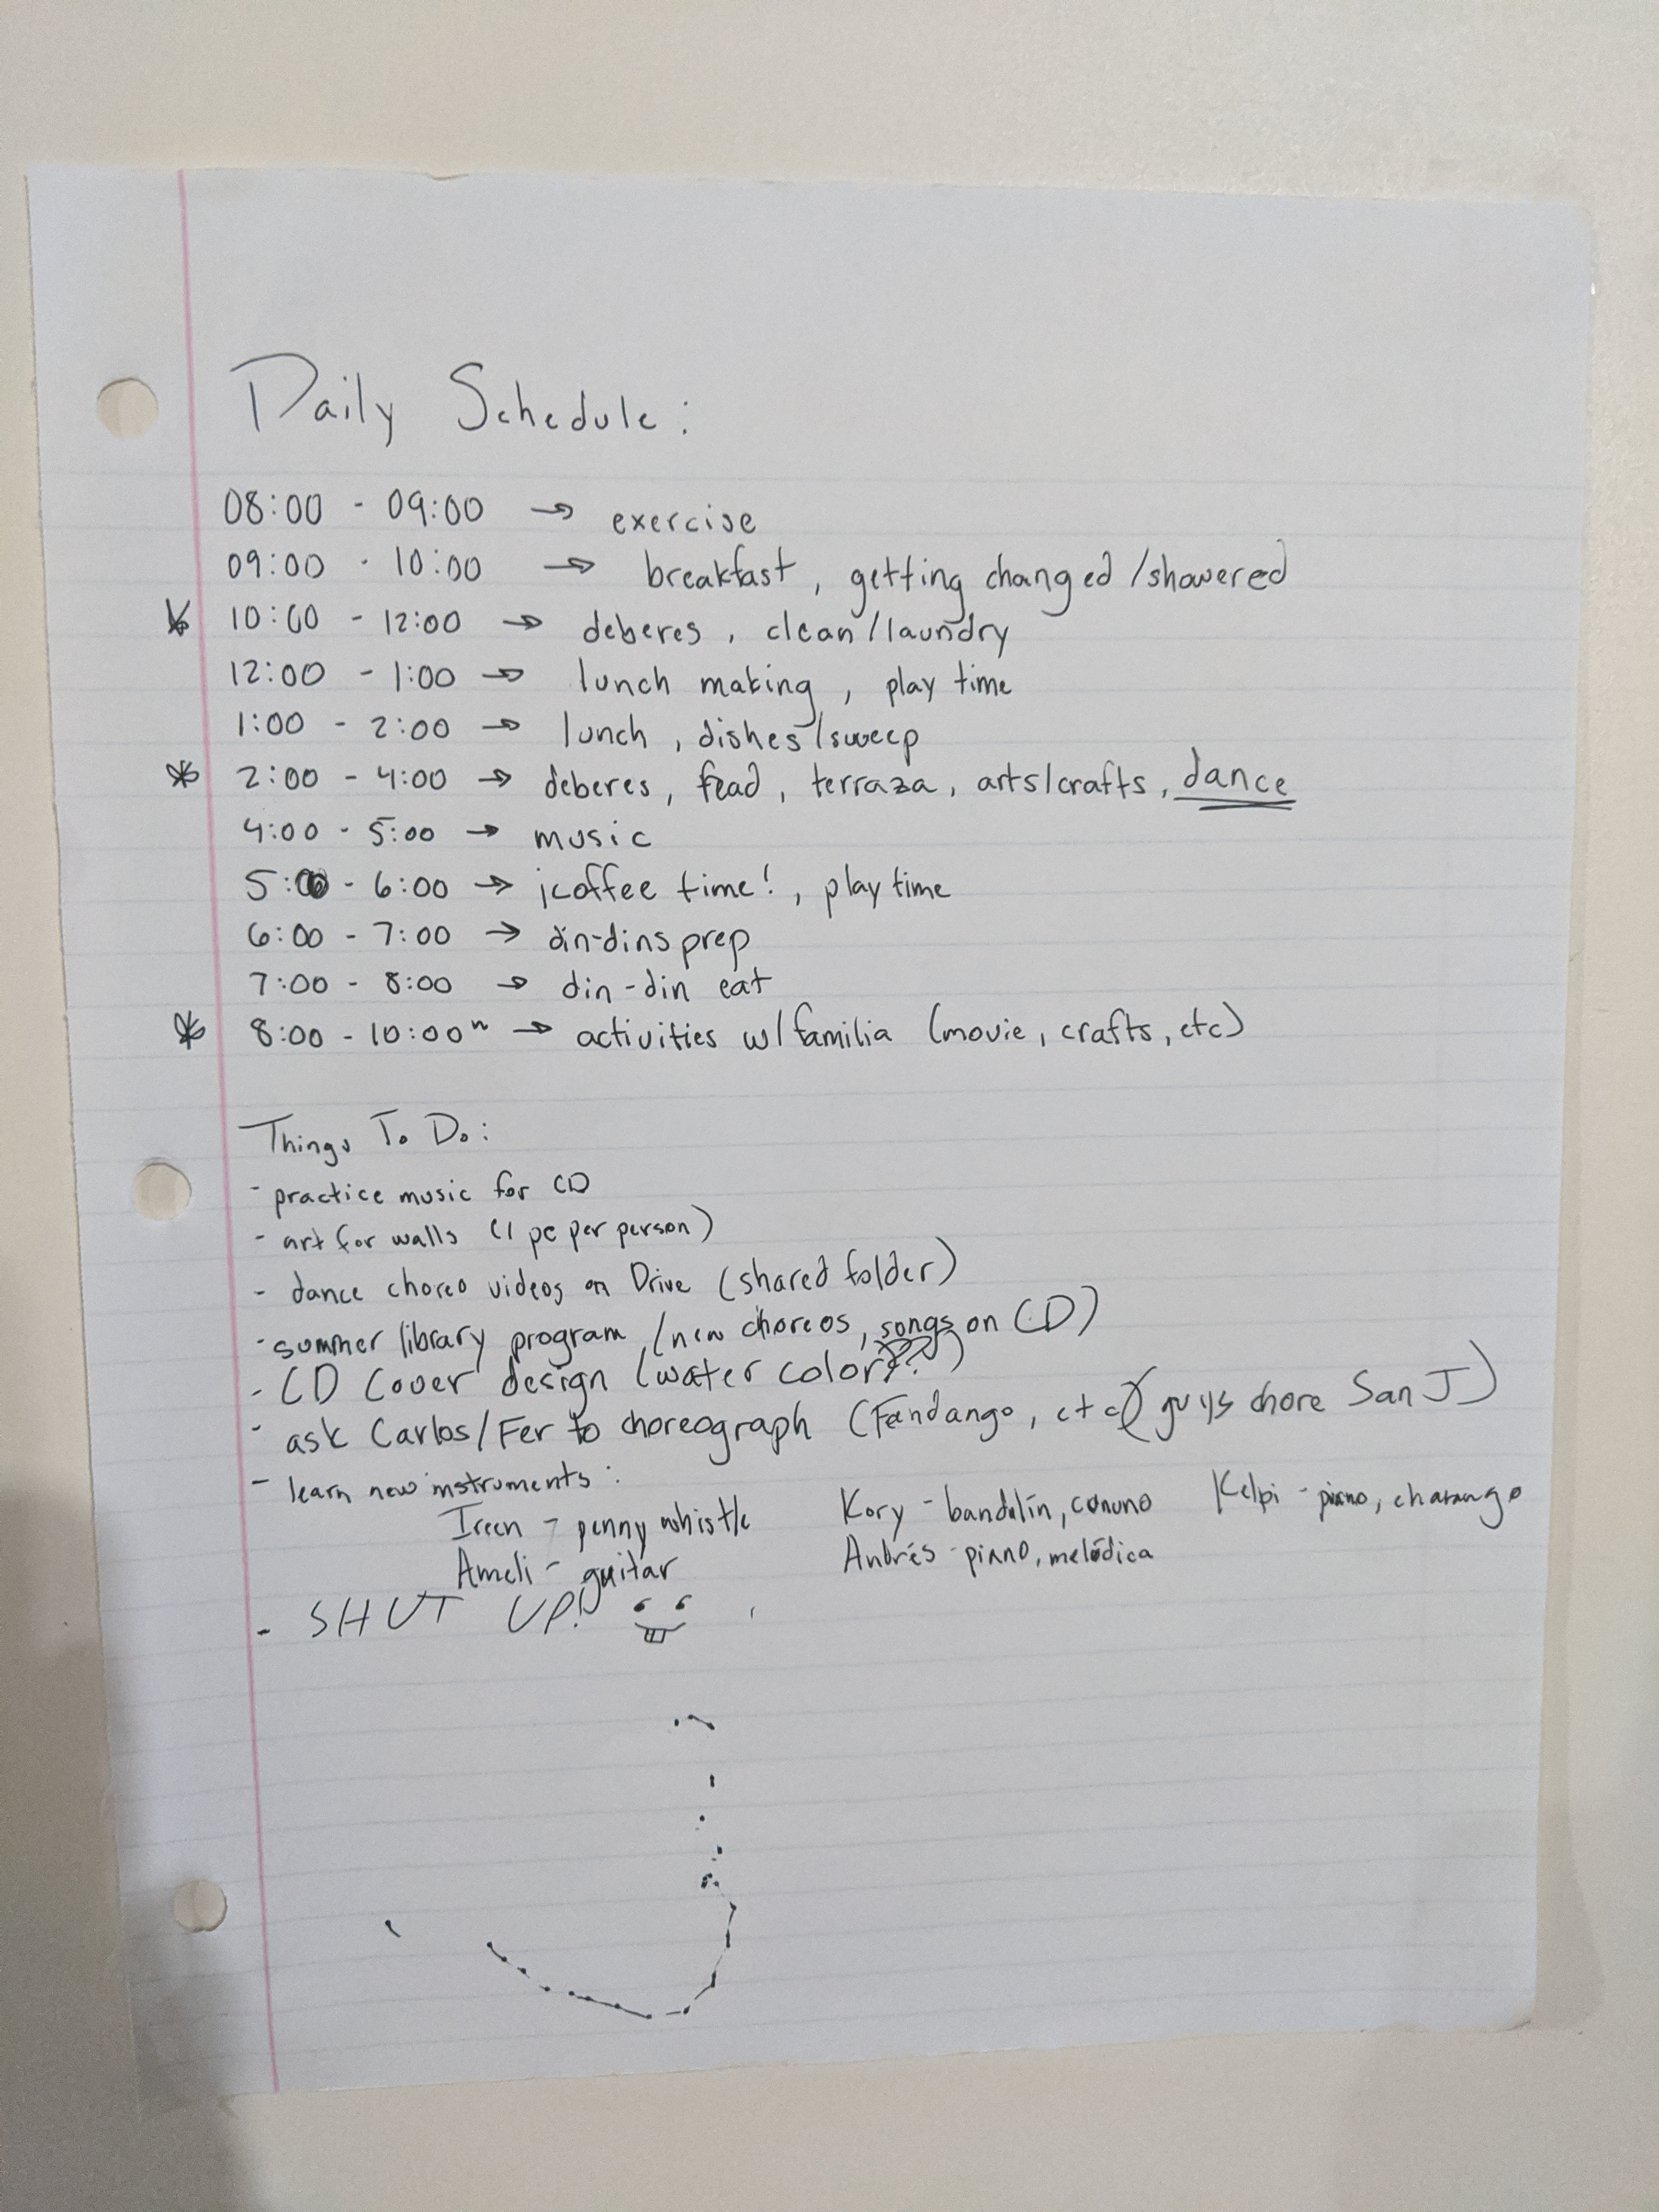 Daily Schedule:
08:00 - 09:00 → exercise
09:00 - 10:00 → breakfast, getting changed/showered
* 10:00 - 12:00 → deberes, clean/laundry
12:00 - 1:00 → lunch making, play time
1:00 - 2:00 → lunch, dishes/sweep
* 2:00 - 4:00 → deberes, read, terraza, arts/crafts, dance
4:00 - 5:00 → music
5:00 - 6:00 → ¡coffee time!, play time
6:00 - 7:00 → din-dins prep
7:00 - 8:00 → din-din eat
* 8:00 - 10:00 → activities w/familia (movie, crafts, etc)
Things To Do:
- practice music for CD
- art for walls (1 pc per person)
- dance choreo videos on Drive (shared folder)
- summer library program (new choreos, songs on CD)
- CD Cover design (water color??)
- ask Carlos/Fer to choreograph (Fandango, etc) (guys chore San J)
- learn new instruments:
Ireen - penny whistle Kory - bandolín, cununo Kelpi - piano, charango
Ameli - guitar Andrés - piano, melódica
- SHUT UP!